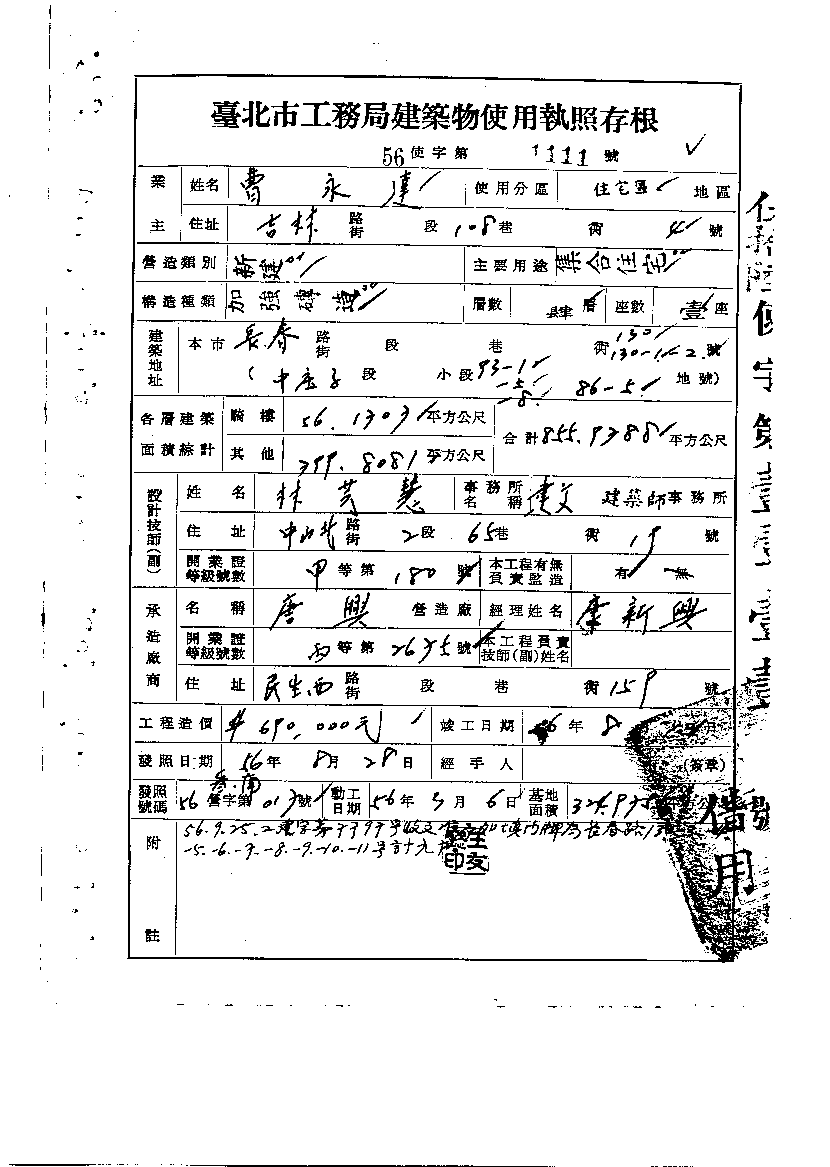 臺北市工務局建築物使用執照存根
56使字第 1111 號
業主 姓名 曹永達 使用分區 住宅區 地區
住址 吉林 路街 段 108巷 衖 4 號
營造類別 新建 主要用途 集合住宅
構造種類 加強磚造 層數 肆層 座數 壹座
建築地址 本市 長春 路街 段 巷 衖 130 130-1-2 號
( 中庄子 段 小段 93-1 -5 -8 86-5 地號)
各層建築面積綜計 騎樓 56.1303 平方公尺 合計 855.9388 平方公尺
其他 799.8081 平方公尺
設計技師(副) 姓名 林 慧 事務所名稱 建文 建築師事務所
住址 中山北 路街 2段 65巷 衖 19 號
開業證等級號數 甲等第 180 號 本工程有無負責監造 有 無
承造廠商 名稱 唐興 營造廠 經理姓名 新興
開業證等級號數 丙等第 2635 號 本工程負責技師(副)姓名
住址 民生西 路街 段 巷 衖 159 號
工程造價 690,000元 竣工日期 56年 8 月
發照日期 56年 8月 28日 經手人 (簽章)
發照號碼 56 營字第 號 動工日期 56年 3月 6日 基地面積
附註 56.9.25.
-5.-6.-7.-8.-9.-10.-11号
印
使字第壹壹壹壹號
借用